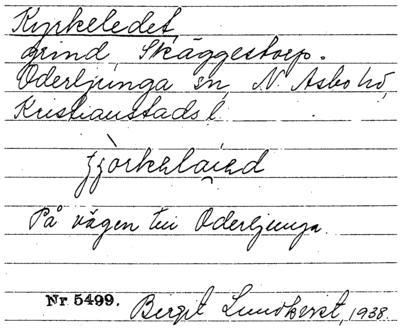 Kyrkeledet,
grind, Skäggestorp.
Oderljunga sn, N. Åsbo hd,
Kristianstads l.
På vägen till Oderljunga.
Nr 5499. Birgit Lundkvist, 1938.